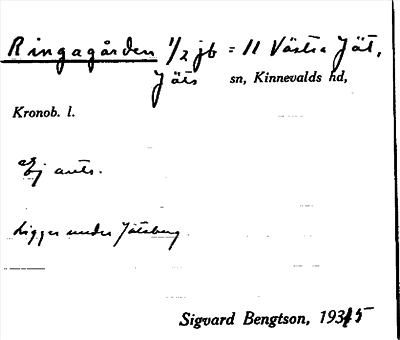 Ringagården 1/2 jb = 11 Västra Jät,
Jäts sn, Kinnevalds hd,
Kronob. l.
Ej ants.
Ligger under Jätsberg
Sigvard Bengtson, 1935